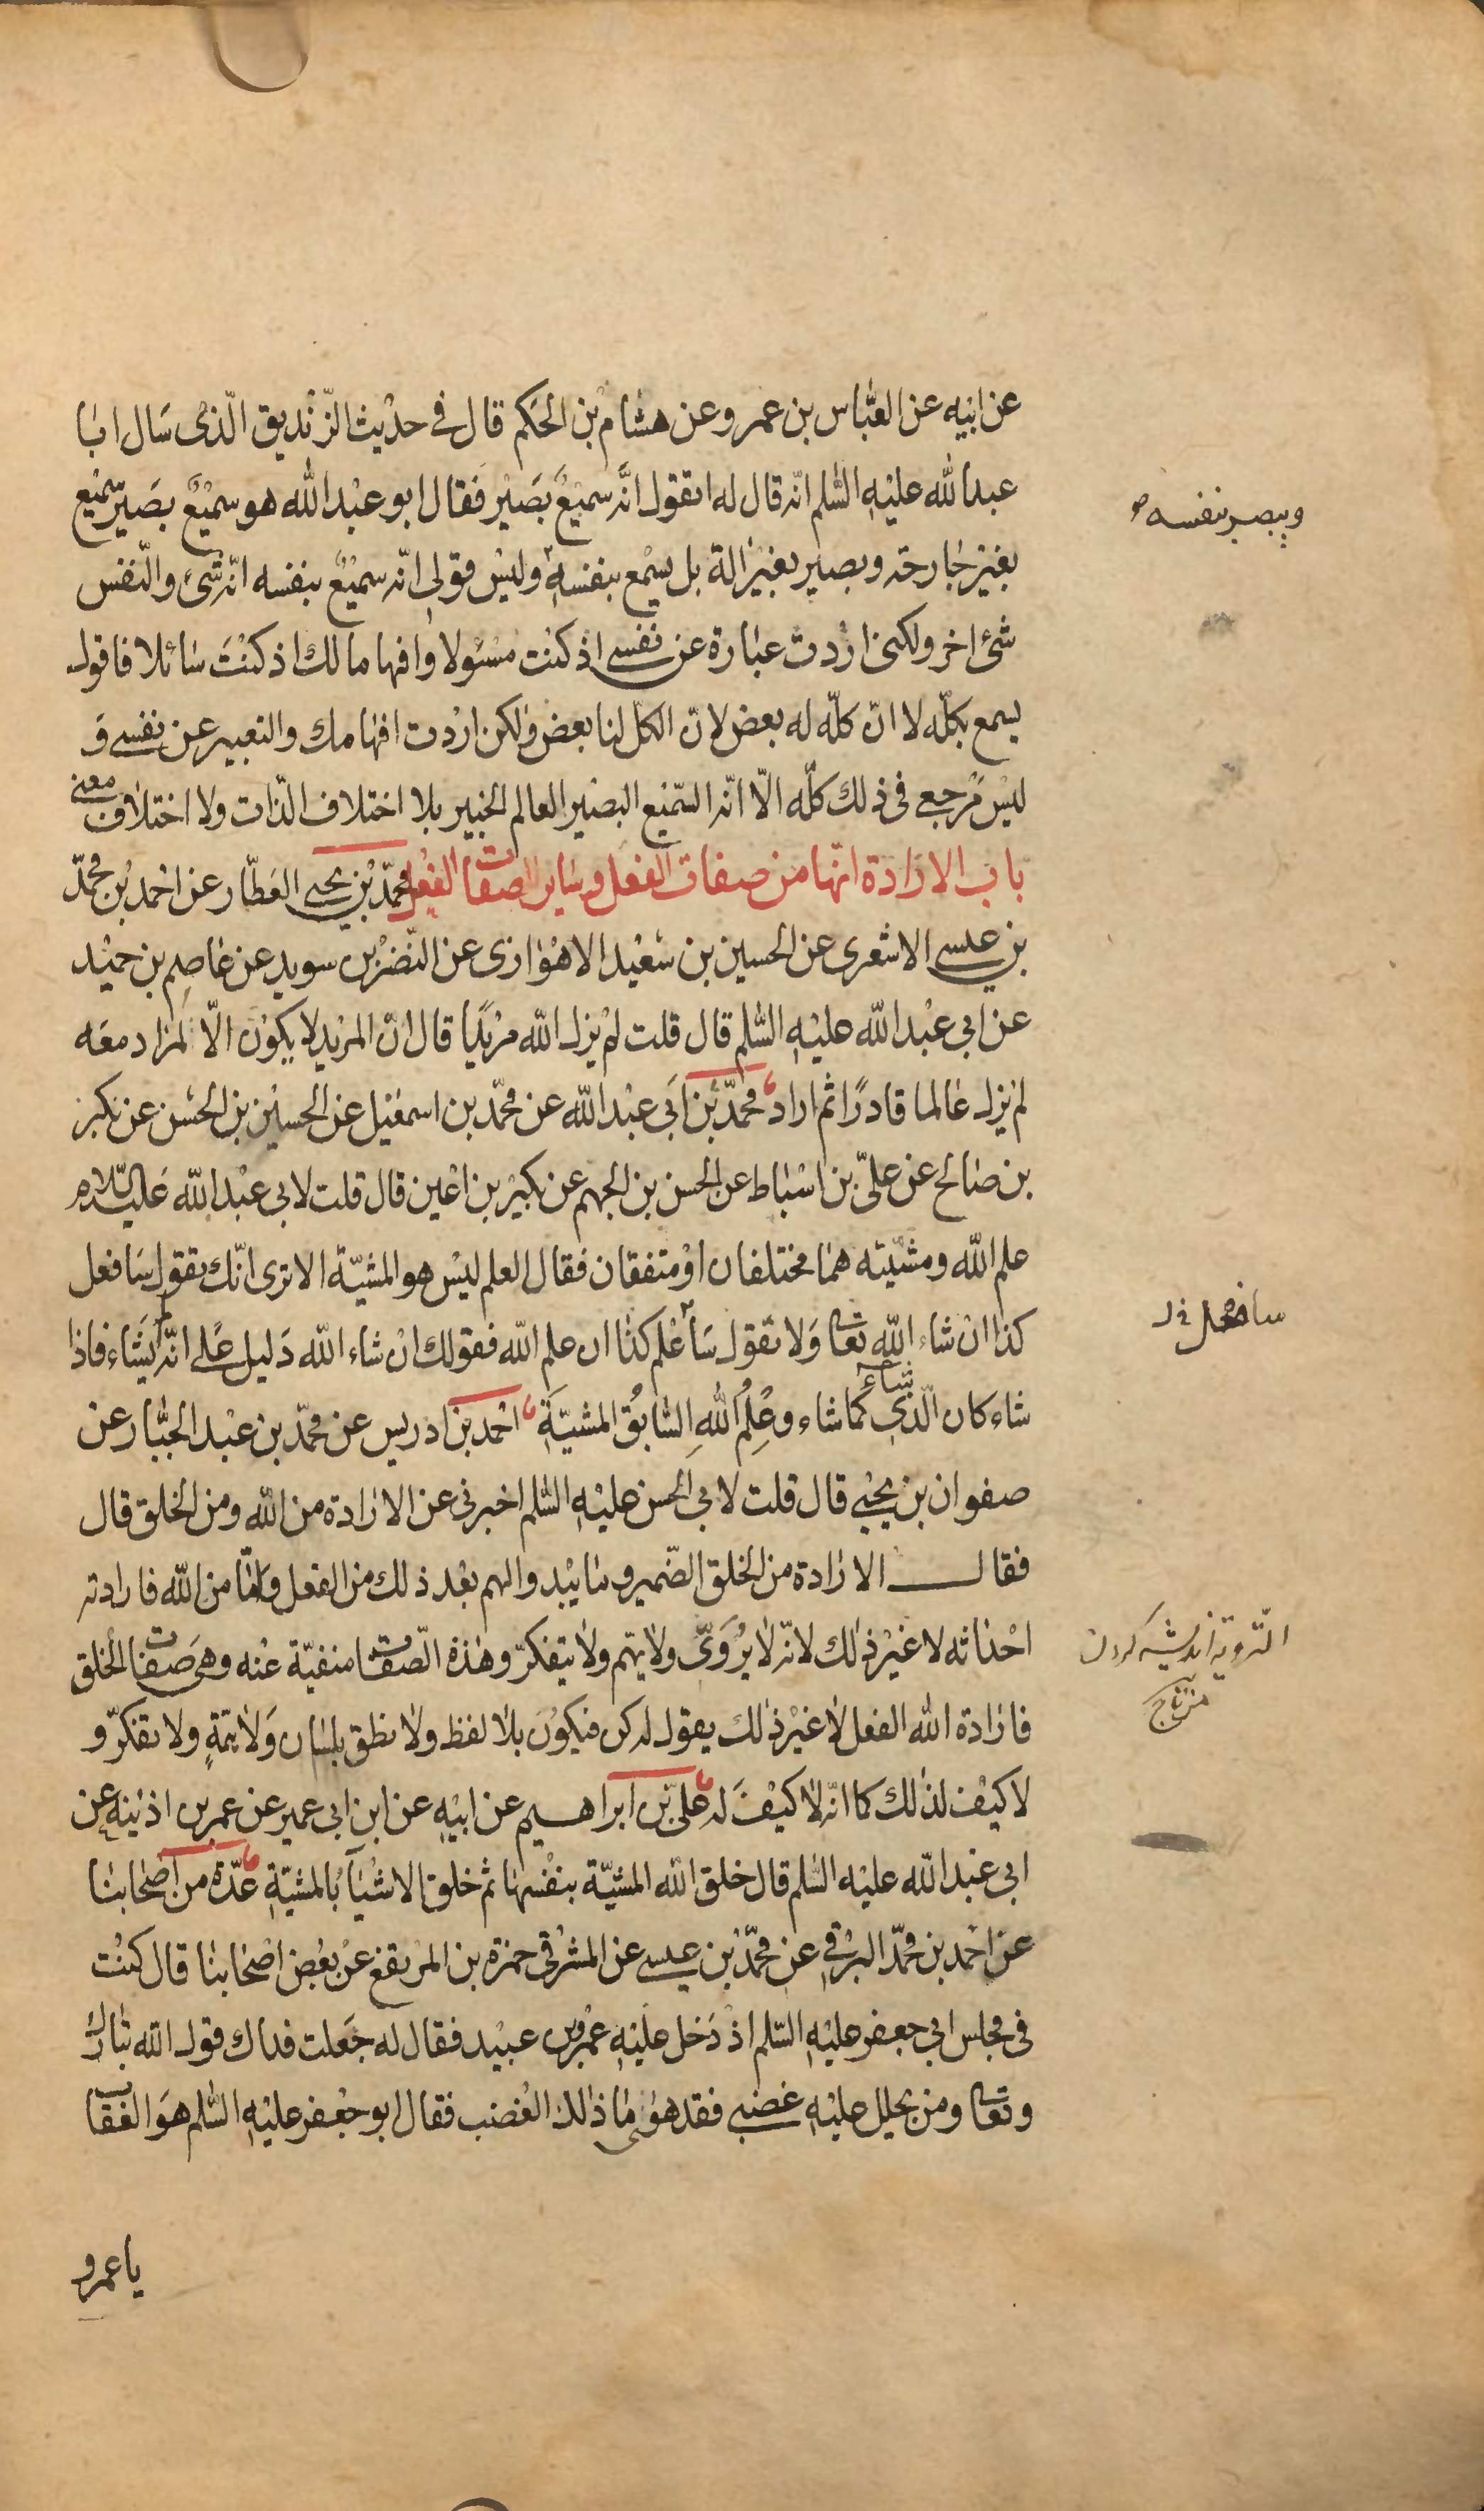 عن ابيه عن العبّاس بن عمرو عن هشام بن الحكم قال في حديث الزّنديق الّذى سَال ابا
عبدالله عليْهِ السّلم انّه قال له اتقول انَّه سميْعٌ بَصَيْر فَقال ابو عبْد الله هو سميْعٌ بصَير سميْع
بغيْر جارحة وبصير بغيْر الة بل يسْمع بنفسهٖ وليْس قولي انّه سميْعٌ بنفسه انّه شئ والنّفس
شئ اخر ولكنى اردت عبارة عن نفسى اذ كنت مسْئولا وافهاما لك اذ كنْتَ سائلا فاقول
يسمع بكلّه لا انّ كلّه له بعض لانّ الكلّ لنا بعض ولكن اردت افهامك والتعبير عن نفسى وَ
ليْس مَرجعى فى ذلك كلّه الّا انّه السّميع البصير العالم الخبير بلا اختلاف الذّات ولا اختلاف معنى
باب الارادة انّها من صفات الفعل وساير الصفات الفعل محمّد بْن يحيى العطّار عن احْمد بْن محمّد
بن عيسى الاشعرى عن الحسين بن سَعْيد الاهْوازى عن النّضرْ بن سويد عن عاصِم بن حميْد
عن ابي عبْد الله عليْهِ السَّلم قال قلت لمْ يزل الله مرْيدًا قال انّ المرْيد لا يكوْن الّا لمراد معَه
لم يزل عَالما قادرًا ثم اراد محمّد بْن اَبي عبْد الله عن محمّد بن اسمعْيل عن الحسيْن بن الحسَن عن بكر
بن صَالح عن علىّ بن اسْباط عن الحسن بن الجهم عن بكيْر بن اعْين قال قلت لابي عبْد الله عَليه السّلام
علم الله ومشيّته هما مختلفان اوْ متفقان فقال العلم ليْس هو المشيّة الا ترى انّك تقول سَافعل
كذا ان شاء الله تعا وَلا تقول سَأعْلم كذا ان علم الله فقولك ان شاء الله دَليل عَلى انّه لم يَشاء فاذا
شاء كان الّذي شاءَ كما شاء وعِلمُ اللهِ السَّابقُ المشيّةَ احْمد بن ادريس عن محمّد بن عبْد الجبَّار عن
صفوان بن يحْيى قال قلت لابي الحسن عليْهِ السَّلم اخبرنى عن الارادة من الله ومن الخلق قال
فقال الارادة من الخلق الضّمير وما يبْد والهم بعْد ذلك من الفعل وامّا من الله فارادته
احْداثه لا غيْر ذلك لانّه لا يرُوَىّ ولا يهّم ولا يتفكرّ وهذة الصّفات منفيّة عنْه وهَى صفَات الخلق
فارادة الله الفعل لا غيْر ذلك يقول له كن فيكوْن بلا لفظ ولا نطق بلسان وَلا همّةٍ ولا تفكرّ و
لا كيْف لذلك كما انّه لا كيْفَ له علىّ بْن ابراهيم عن ابيْهِ عن ابن ابى عمير عن عمر بن اذيْنه عن
ابي عبْد الله عليْه السّلم قال خلق الله المشيّة بنفْسها ثم خلق الاشْياءَ بالمشيّةِ عدّة من اصْحابنا
عن احْمد بن محمّد البرْقي عن محمّد بْن عيسى عن المشرْقي حمزة بن المرْتقع عنْ بعْض اصْحابنا قال كنْت
فى مجلس ابي جعفر عليْهِ السّلم اذْ دَخل عليْهِ عمْرو بن عبيْد فقال له جَعلت فداك قول الله تبارك
وتعا ومن يحلل عليْهِ غضبى فقد هوى ما ذلك الغضب فقال ابو جعْفر عليْهِ السَّلم هوَ العقاب
يا عمرو
ويبصر بنفسه صح
سافعل خ ل
التروية انديشه كردن
من تاج